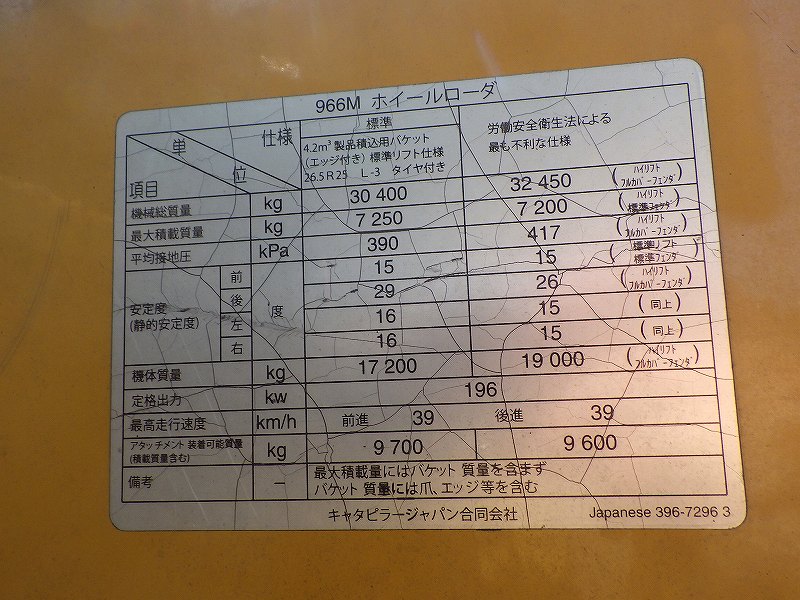 966M ホイールローダ
単位 仕様 項目 標準 労働安全衛生法による
4.2m³ 製品積込用バケット 最も不利な仕様
(エッジ付き) 標準リフト仕様
26.5R25 L-3 タイヤ付き
機械総質量 kg 30 400 32 450 (ハイリフト フルカバーフェンダ)
最大積載質量 kg 7 250 7 200 (ハイリフト 標準フェンダ)
平均接地圧 kPa 390 417 (ハイリフト フルカバーフェンダ)
安定度 (静的安定度) 前 度 15 15 (標準リフト 標準フェンダ)
後 29 26 (ハイリフト フルカバーフェンダ)
左 16 15 (同上)
右 16 15 (同上)
機体質量 kg 17 200 19 000 (ハイリフト フルカバーフェンダ)
定格出力 kw 196
最高走行速度 km/h 前進 39 後進 39
アタッチメント 装着可能質量 kg 9 700 9 600
(積載質量含む)
備考 – 最大積載量にはバケット 質量を含まず
バケット 質量には爪、エッジ等を含む
キャタピラージャパン合同会社 Japanese 396-7296 3